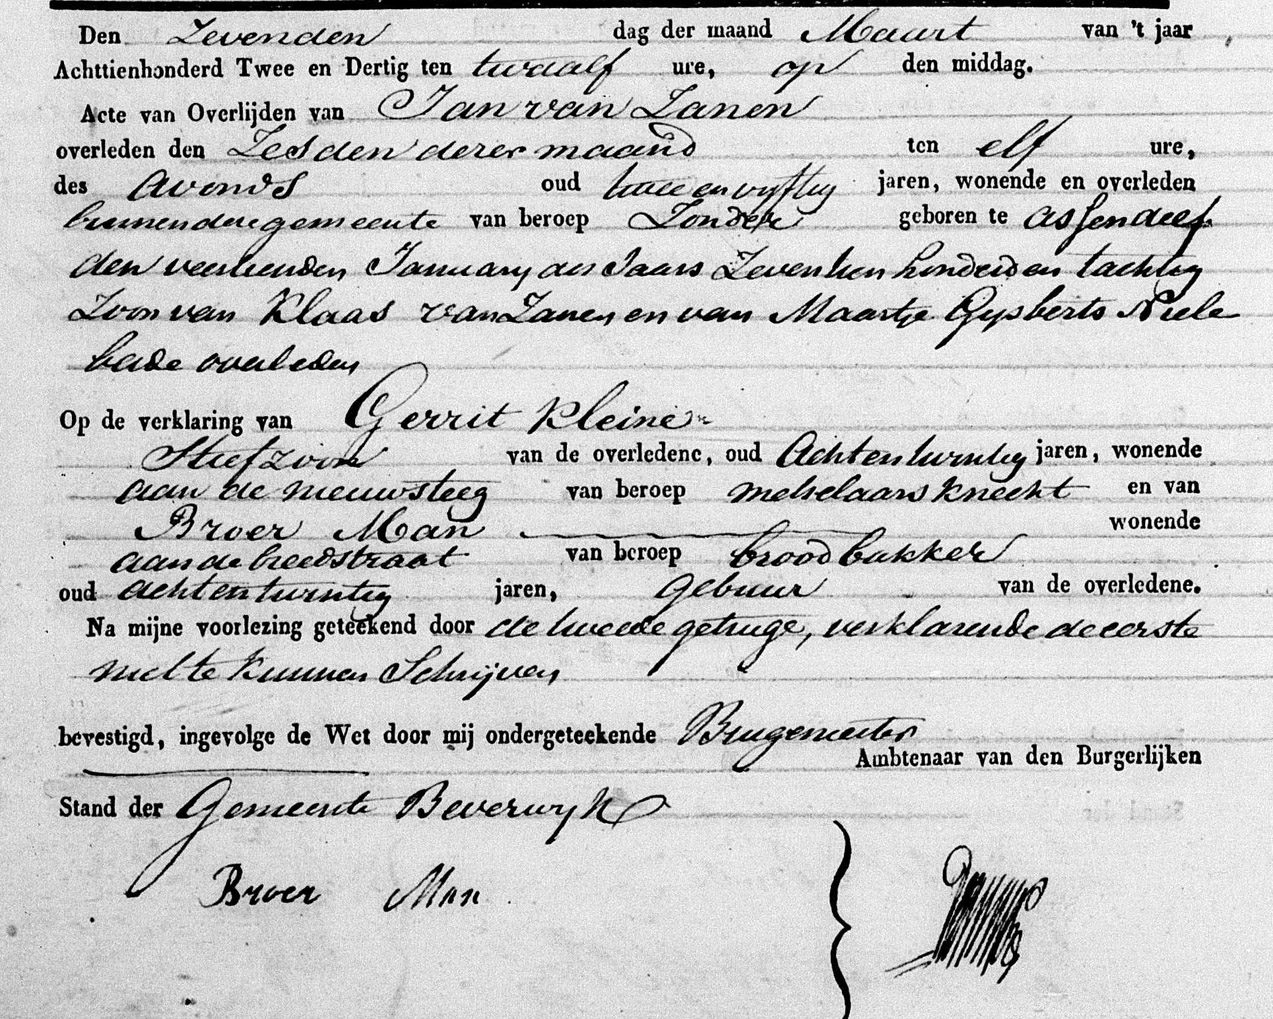 Den Zevenden dag der maand Maart van 't jaar
Achttienhonderd Twee en Dertig ten twaalf ure, op den middag.
Acte van Overlijden van Jan van Zanen
overleden den Zesden dezer maand ten elf ure,
des Avonds oud twee en vyftig jaren, wonende en overleden
binnen deze gemeente van beroep Zonder geboren te Assendelf
den veertienden January des Jaars Zeventien honderd en tachtig
Zoon van Klaas van Zanen en van Maartje Gysberts Niele
beide overleden
Op de verklaring van Gerrit Kleine
Stiefzoon van de overledene, oud Achtentwintig jaren, wonende
aan de nieuwsteeg van beroep metselaars knecht en van
Broer Man wonende
aan de breedstraat van beroep broodbakker
oud achtentwintig jaren, gebuur van de overledene.
Na mijne voorlezing geteekend door de tweede getuige, verklarende de eerste
niet te kunnen Schrijven
bevestigd, ingevolge de Wet door mij ondergeteekende Burgemeester
Ambtenaar van den Burgerlijken
Stand der Gemeente Beverwyk
Broer Man